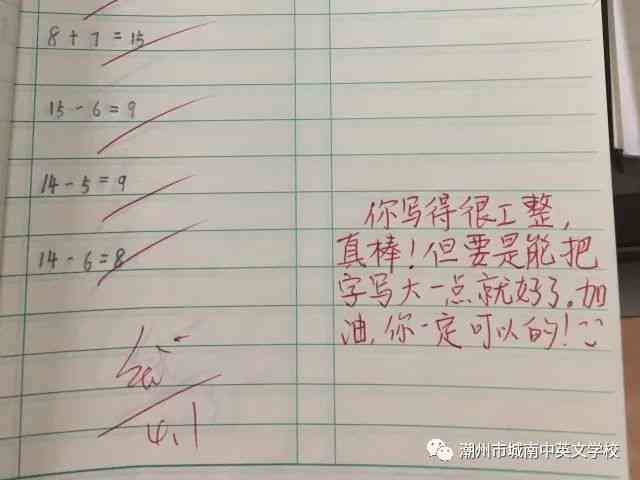 8+7=15
15-6=9
14-5=9
14-6=8
你写得很工整,
真棒!但要是能把
字写大一点就好了。加
油,你一定可以的!
4.1
潮州市城南中英文学校